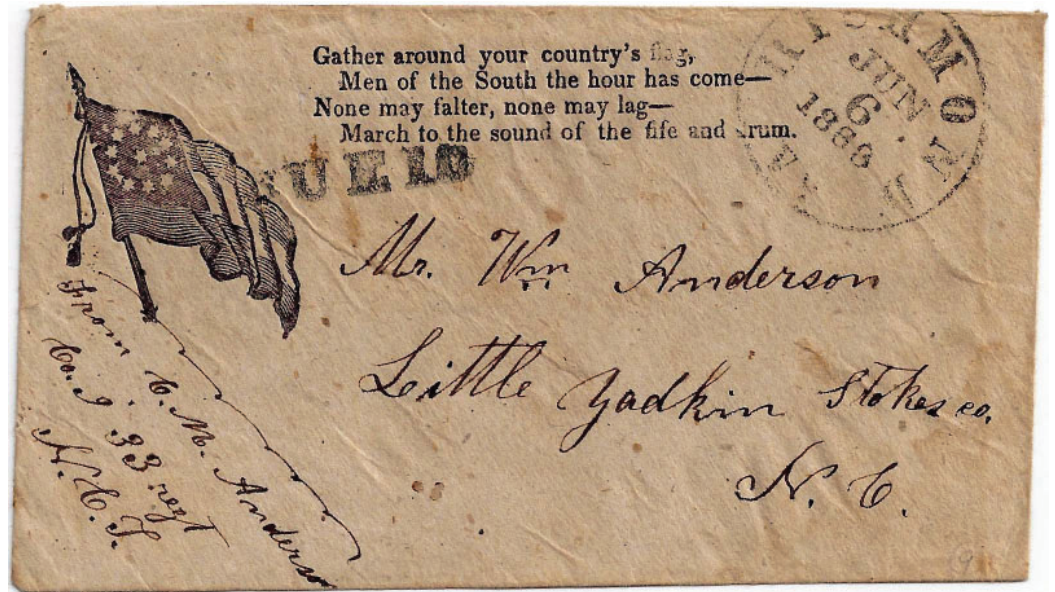 Gather around your country's flag,
Men of the South the hour has come—
None may falter, none may lag—
March to the sound of the fife and drum.
RICHMOND VA.
JUN
6
DUE 10
Mr. Wm Anderson
Little Yadkin Stokes co.
N. C.
From C. M. Anderson
Co. I 33 regt
N. C. T.